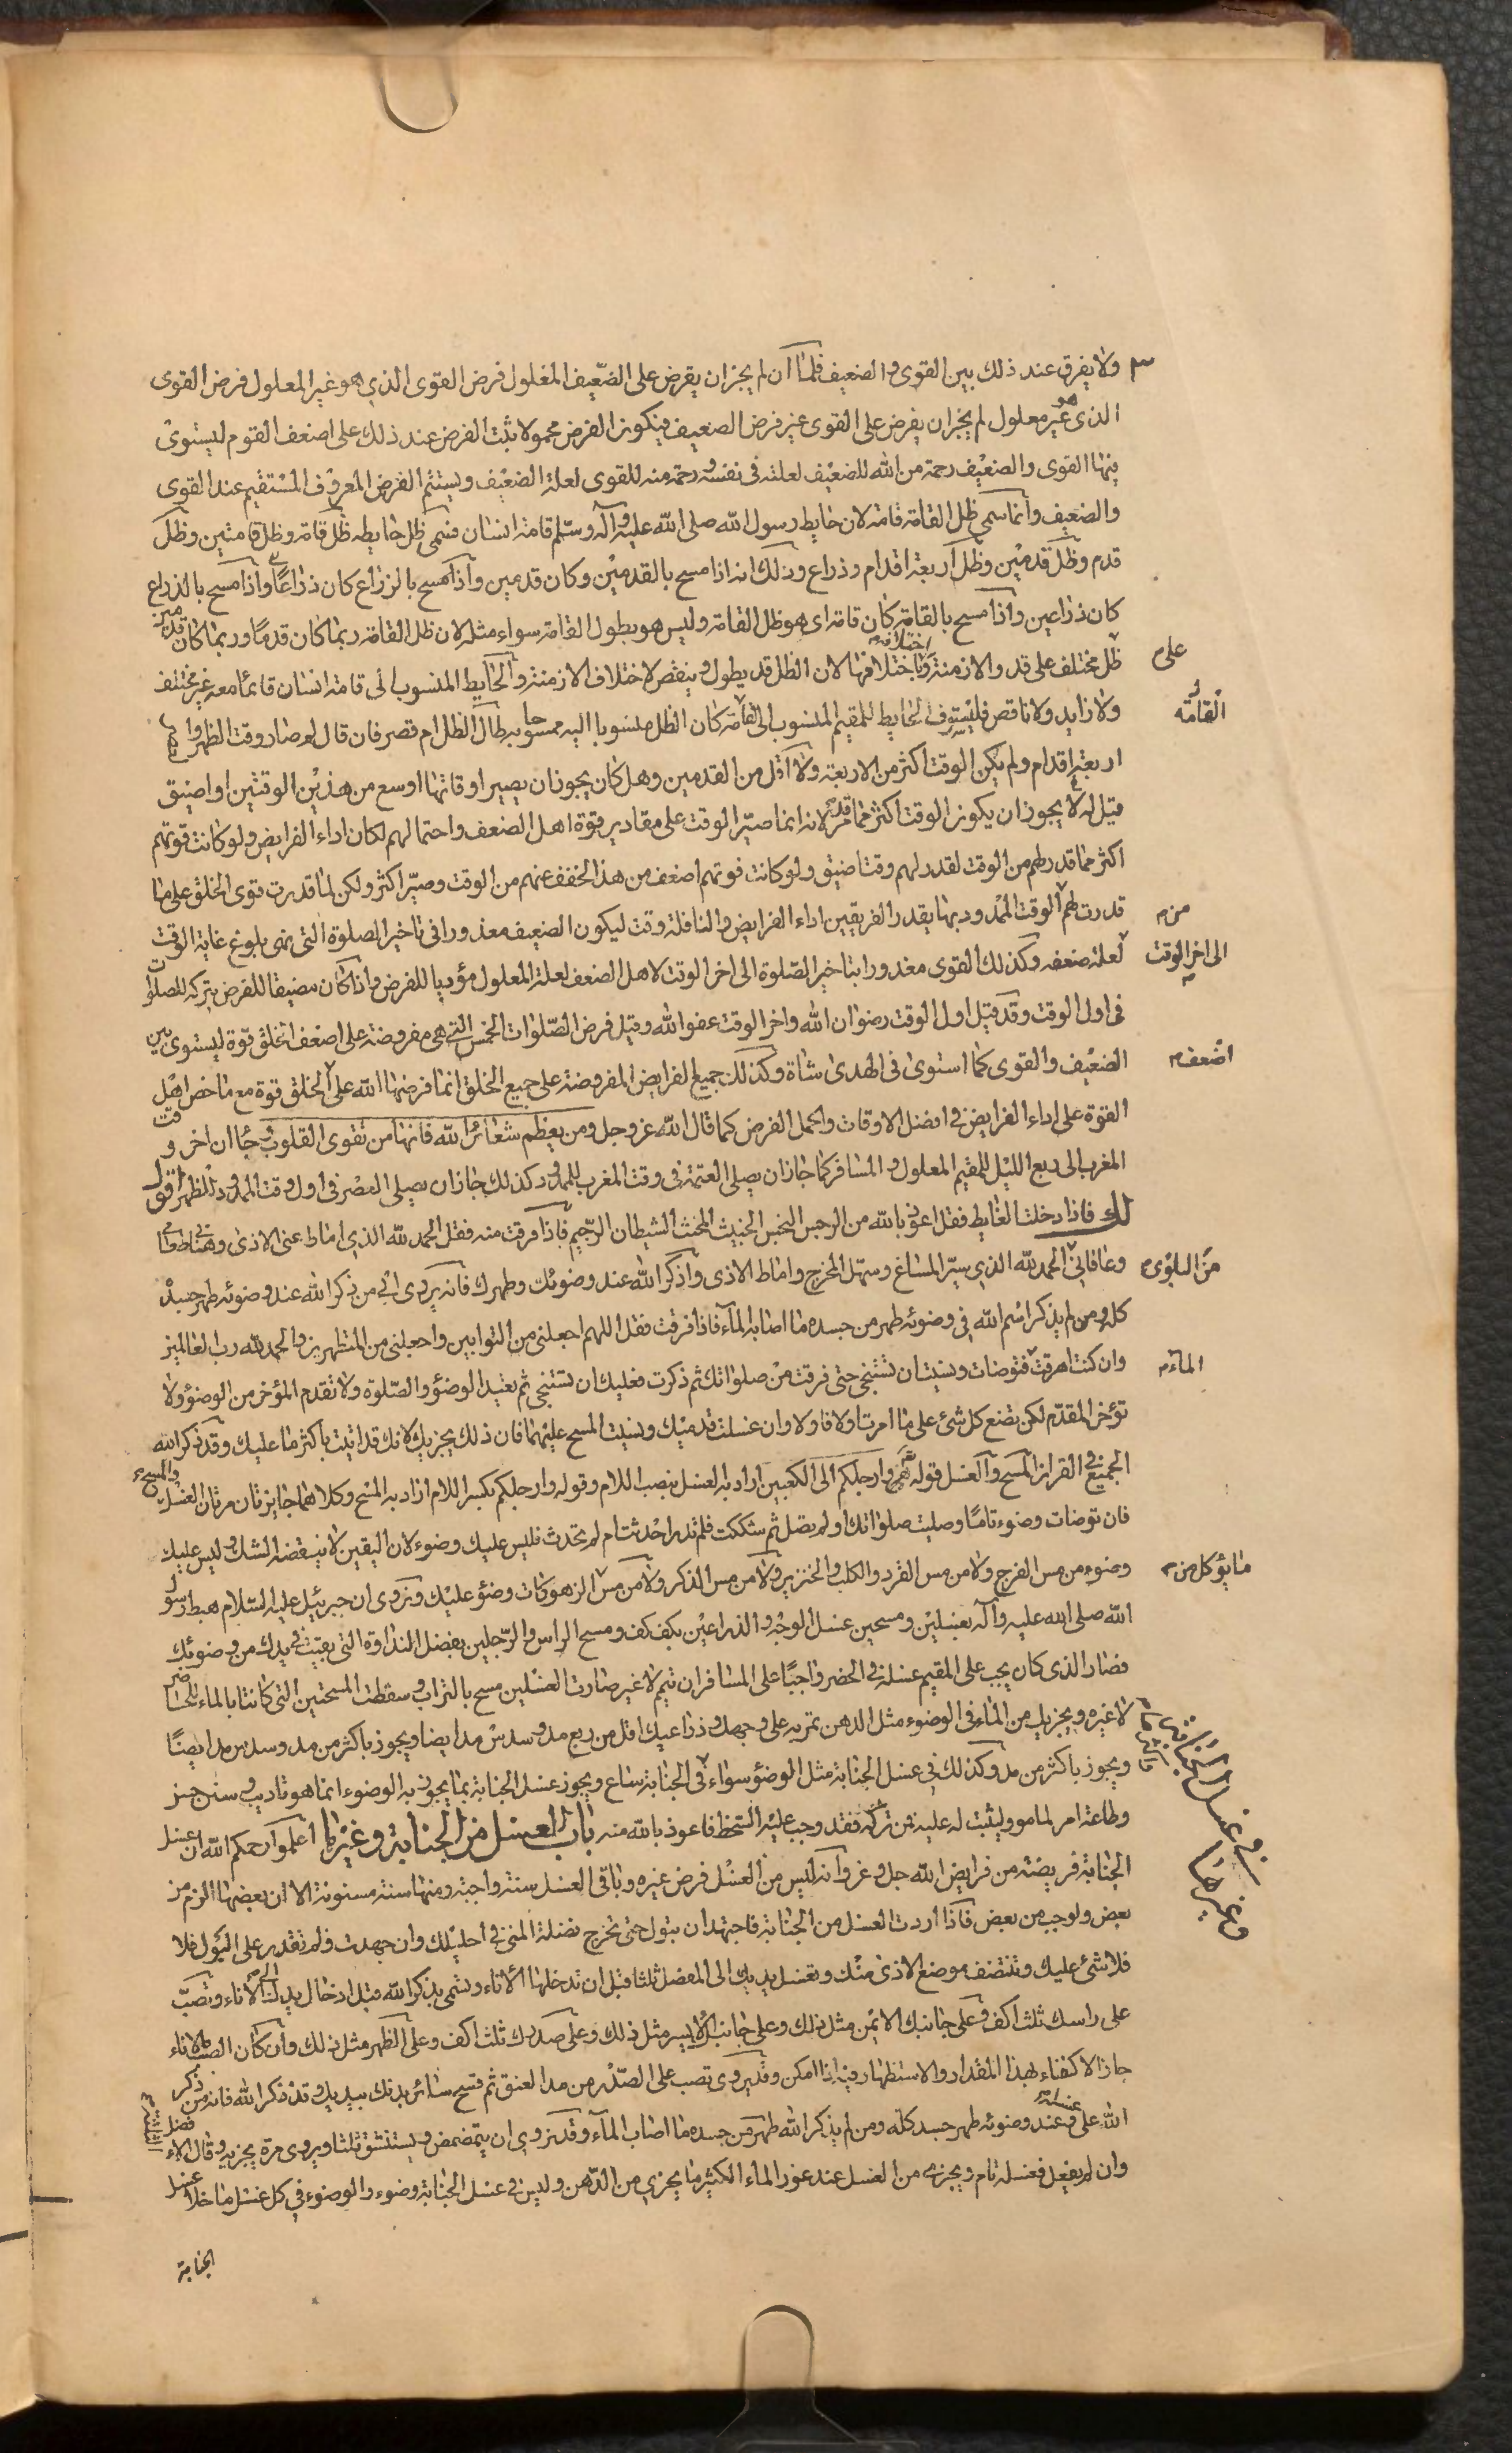 ولا يفرق عند ذلك بين القوى والضعيف فلما ان لم يجز ان يفرض على الضعيف المعلول فرض القوى الذي هو غير المعلول فرض القوى
الذى هو غير معلول لم يجز ان يفرض على القوى غير فرض الضعيف فيكون الفرض محمولا ثبت الفرض عند ذلك على اضعف القوم ليستوى
فيها القوى والضعيف رحمة من الله للضعيف لعلته فى نفسه ورحمة منه للقوى لعلة الضعيف ويستتم الفرض المعروف المستقيم عند القوى
والضعيف وانما سمى ظل القامة قامة لان حايط رسول الله صلى الله عليه وآله وسلم قامة انسان فسمى ظل حايطه ظل قامة وظل قامتين وظل
قدم وظل قدمين وظل اربعة اقدام وذراع وذلك انه اذا مسح بالقدمين وكان قدمين واذا مسح بالذراع كان ذراعا واذا مسح بالذراعين
كان ذراعين واذا مسح بالقامة كان قامة اى هو ظل القامة وليس هو بطول القامة سواء مثله لان ظل القامة ربما كان قدما وربما كان قدمين
ظل مختلف على قدر الازمنة واختلافها لان الظل قد يطول وينقص لاختلاف الازمنة والحايط المنسوب الى قامة انسان قائما معه غير مختلف
ولا زايد ولا ناقص فليستوف الحايط المقيم المنسوب الى القامة كان الظل منسوبا اليه ممسوحا به طال الظل ام قصر فان قال لم صار وقت الظهر
اربعة اقدام ولم يكن الوقت اكثر من الاربعة ولا اقل من القدمين وهل كان يجوز ان يصير اوقاتها اوسع من هذين الوقتين او اضيق
قيل له لا يجوز ان يكون الوقت اكثر مما قدر لانه انما صير الوقت على مقادير قوة اهل الضعف واحتمالهم لكان اداء الفرايض ولو كانت قوتهم
اكثر مما قدر لهم من الوقت لقدر لهم وقتا ضيق ولو كانت قوتهم اضعف من هذا لخفف عنهم من الوقت وصير اكثر ولكن لما قدرت قوى الخلق على ما
قدرت لهم الوقت الممدود بها يقدر الفريقين اداء الفرايض والنافلة وقت ليكون الضعيف معذورا فى تاخير الصلوة التى هى بلوغ غاية الوقت
لعلة ضعفه وكذلك القوى معذورا بتاخير الصلوة الى اخر الوقت لاهل الضعف لعلة المعلول مؤديا للفرض واذا كان مضيقا للفرض بتركه للصلوة
فى اول الوقت وقد قيل اول الوقت رضوان الله واخر الوقت عفو الله وقيل فرض الصلوات الخمس التى هى مفروضة على اضعف الخلق قوة ليستوى بين
الضعيف والقوى كما استوى فى الهدى شاة وكذلك جميع الفرايض المفروضة على جميع الخلق انما فرضها الله على الخلق قوة مع ما خص اهل
القوة على اداء الفرايض فى افضل الاوقات واكمل الفرض كما قال الله عز وجل ومن يعظم شعائر الله فانها من تقوى القلوب وجاء ان اخر وقت
المغرب الى ربع الليل للمقيم المعلول والمسافر كما جاز ان يصلى العتمة فى وقت المغرب الممدود كذلك جاز ان يصلى العصر فى اول وقت الممدود للظهر اقول
لك فاذا دخلت الغايط فقل اعوذ بالله من الرجس النجس الخبيث المخبث الشيطان الرجيم فاذا فرغت منه فقل الحمد لله الذي اماط عنى الاذى وهنانى طعامى
وعافانى الحمد لله الذي يسر المساغ وسهل المخرج واماط الاذى واذكر الله عند وضوئك وطهرك فانه يروى ان من ذكر الله عند وضوئه طهر جسده
كله ومن لم يذكر اسم الله فى وضوئه طهر من جسده ما اصابه الماء فاذا فرغت فقل اللهم اجعلنى من التوابين واجعلنى من المتطهرين والحمد لله رب العالمين
وان كنت اهرقت فتوضات ونسيت ان تستنجى حتى فرغت من صلواتك ثم ذكرت فعليك ان تستنجى ثم تعيد الوضوء والصلوة ولا تقدم المؤخر من الوضوء ولا
تؤخر المقدم لكن تضع كل شئ على ما امرت اولا فاولا وان غسلت قدميك ونسيت المسح عليهما فان ذلك يجزيك لانك قد اتيت باكثر ما عليك وقد ذكر الله
الجميع فى القران المسح والغسل قوله تعالى وارجلكم الى الكعبين اراد به الغسل بنصب اللام وقوله وارجلكم بكسر اللام اراد به المسح وكلاهما جايزتان مرتان الغسل والمسح
فان توضات وضوء تاما وصليت صلواتك او لم تصل ثم شككت فلم تدر احدثت ام لم تحدث فليس عليك وضوء لان اليقين لا ينقضه الشك وليس عليك
وضوء من مس الفرج ولا من مس القرد والكلب والخنزير ولا من مس الذكر ولا من مس الزهوكات وضوء عليك ونروى ان جبرئيل عليه السلام هبط على رسول
الله صلى الله عليه وآله بغسلين ومسحين غسل الوجه والذراعين بكف كف ومسح الراس والرجلين بفضل النداوة التى بقيت فى يدك من وضوئك
فصار الذى كان يجب على المقيم غسله فى الحضر واجبا على المسافر ان تيمم لا غير صارت الغسلين مسح بالتراب وسقطت المسحتين التى كانتا بالماء للحاضر
لا غيره ويجزيك من الماء فى الوضوء مثل الدهن تمر به على وجهك وذراعيك اقل من ربع مد وسدس مد ايضا ويجوز باكثر من مد وسدس مد ايضا
ويجوز باكثر من مد وكذلك فى غسل الجنابة مثل الوضوء سواء فى الجنابة بصاع ويجوز غسل الجنابة بما يجوز به الوضوء انما هو تاديب وسنن حسن
وطاعة امر لمامور ليثيب له عليه فمن تركه فقد وجب عليه السخط فاعوذ بالله منه باب الغسل من الجنابة وغيرها اعلموا رحمكم الله ان غسل
الجنابة فريضة من فرايض الله جل وعز وانه ليس من الغسل فرض غيره وباقى الغسل سنة واجبة ومنها سنة مسنونة الا ان بعضها الزم من
بعض واوجب من بعض فاذا اردت الغسل من الجنابة فاجتهد ان تبول حتى تخرج فضلة المنى فى احليلك وان جهدت ولم تقدر على البول فلا
فلا شئ عليك وتنظف موضع الاذى منك وتغسل يديك الى المفصل ثلثا قبل ان تدخلها الاناء وتسمى بذكر الله قبل ادخال يدك الى الاناء وتصب
على راسك ثلث اكف وعلى جانبك الايمن مثل ذلك وعلى جانبك الايسر مثل ذلك وعلى صدرك ثلث اكف وعلى الظهر مثل ذلك وان كان الصب بالاناء
جاز الاكتفاء بهذا المقدار والاستظهار فيه اذا امكن وقد يروى تصب على الصدر من مد العنق ثم تمسح سائر بدنك بيديك وقد ذكر الله فانه من ذكر
الله على غسله وعند وضوئه طهر جسده كله ومن لم يذكر الله طهر من جسده ما اصاب الماء وقد نروى ان يتمضمض ويستنشق ثلثا ويروى مرة يجزيه وقال الافضل الثلثة
وان لم يفعل فغسله تام ويجزى من الغسل عند عوز الماء الكثير ما يجزى من الدهن وليس فى غسل الجنابة وضوء والوضوء فى كل غسل ما خلا غسل
الجنابة
على
القامة
من
الى اخر الوقت
اضعف
من البلوى
الماء
ما يؤكل من
وغيرها